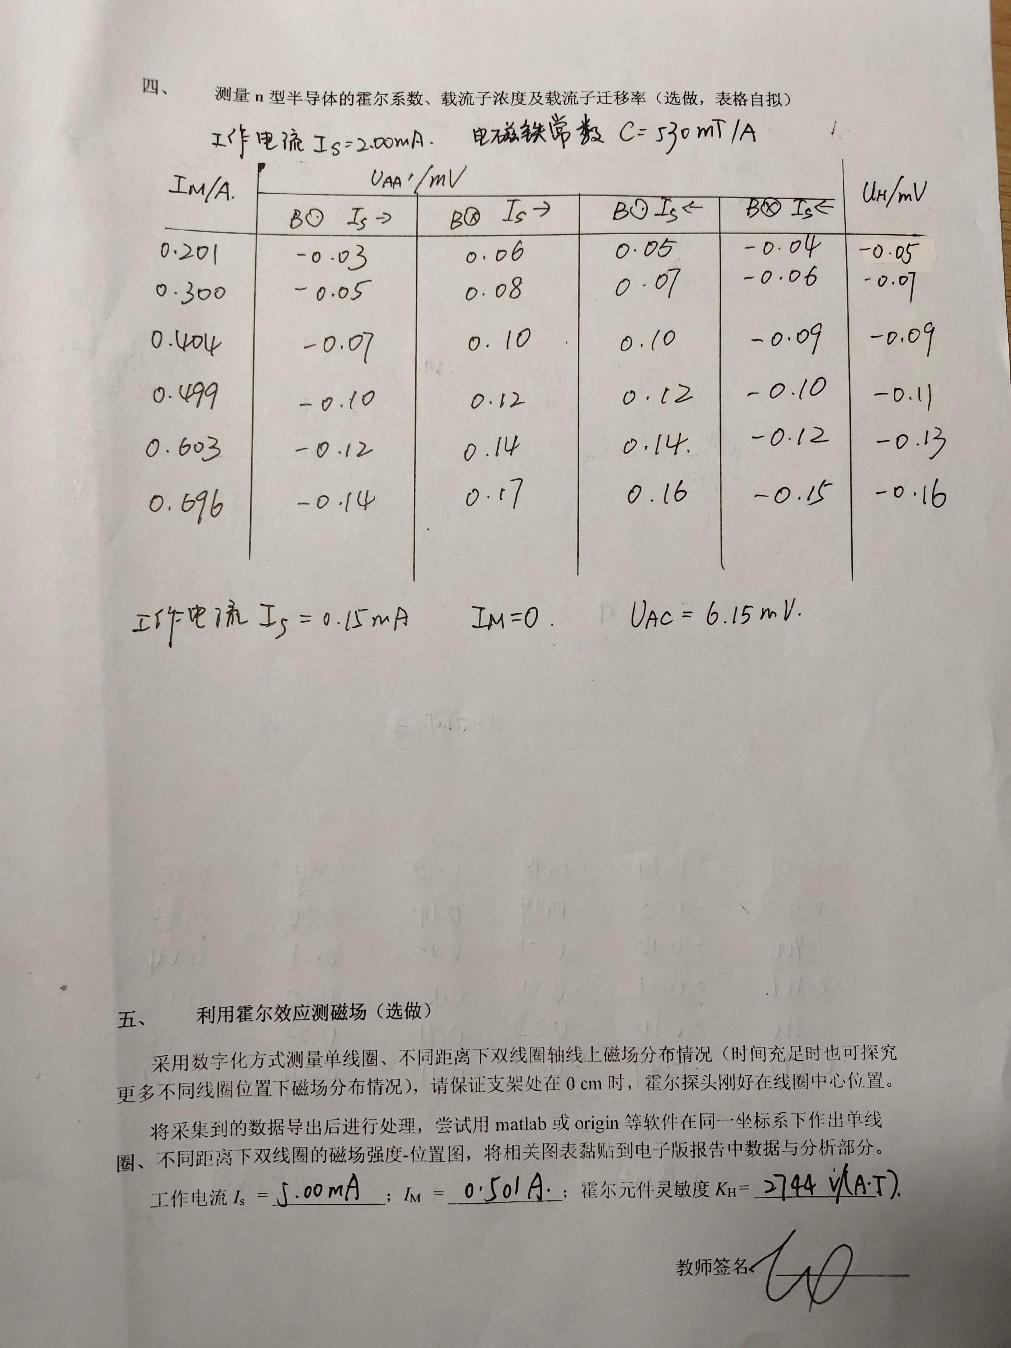 四、 测量 n 型半导体的霍尔系数、载流子浓度及载流子迁移率（选做，表格自拟）
工作电流 Is=2.00mA. 电磁铁常数 C=530mT/A
IM/A. UAA'/mV UH/mV
B⊙ Is→ B⊗ Is→ B⊙ Is← B⊗ Is←
0.201 -0.03 0.06 0.05 -0.04 -0.05
0.300 -0.05 0.08 0.07 -0.06 -0.07
0.404 -0.07 0.10 0.10 -0.09 -0.09
0.499 -0.10 0.12 0.12 -0.10 -0.11
0.603 -0.12 0.14 0.14. -0.12 -0.13
0.696 -0.14 0.17 0.16 -0.15 -0.16
工作电流 Is=0.15mA IM=0. UAC=6.15mV.
五、 利用霍尔效应测磁场（选做）
采用数字化方式测量单线圈、不同距离下双线圈轴线上磁场分布情况（时间充足时也可探究
更多不同线圈位置下磁场分布情况），请保证支架处在 0 cm 时，霍尔探头刚好在线圈中心位置。
将采集到的数据导出后进行处理，尝试用 matlab 或 origin 等软件在同一坐标系下作出单线
圈、不同距离下双线圈的磁场强度-位置图，将相关图表黏贴到电子版报告中数据与分析部分。
工作电流 Is = 5.00mA ；IM = 0.501A. ；霍尔元件灵敏度 KH= 2744 V/(A·T).
教师签名